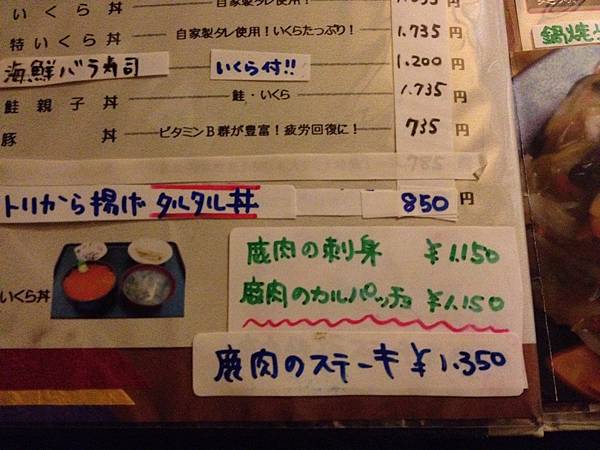 いくら丼 自家製タレ使用!
特いくら丼 自家製タレ使用!いくらたっぷり! 1.735 円
海鮮バラ寿司 いくら付!! 1.200 円
鮭親子丼 鮭・いくら 1.735 円
豚丼 ビタミンB群が豊富!疲労回復に! 735 円
785
トリから揚げ タルタル丼 850 円
いくら丼
鹿肉の刺身 ¥1.150
鹿肉のカルパッチョ ¥1.150
鹿肉のステーキ ¥1.350
鍋焼